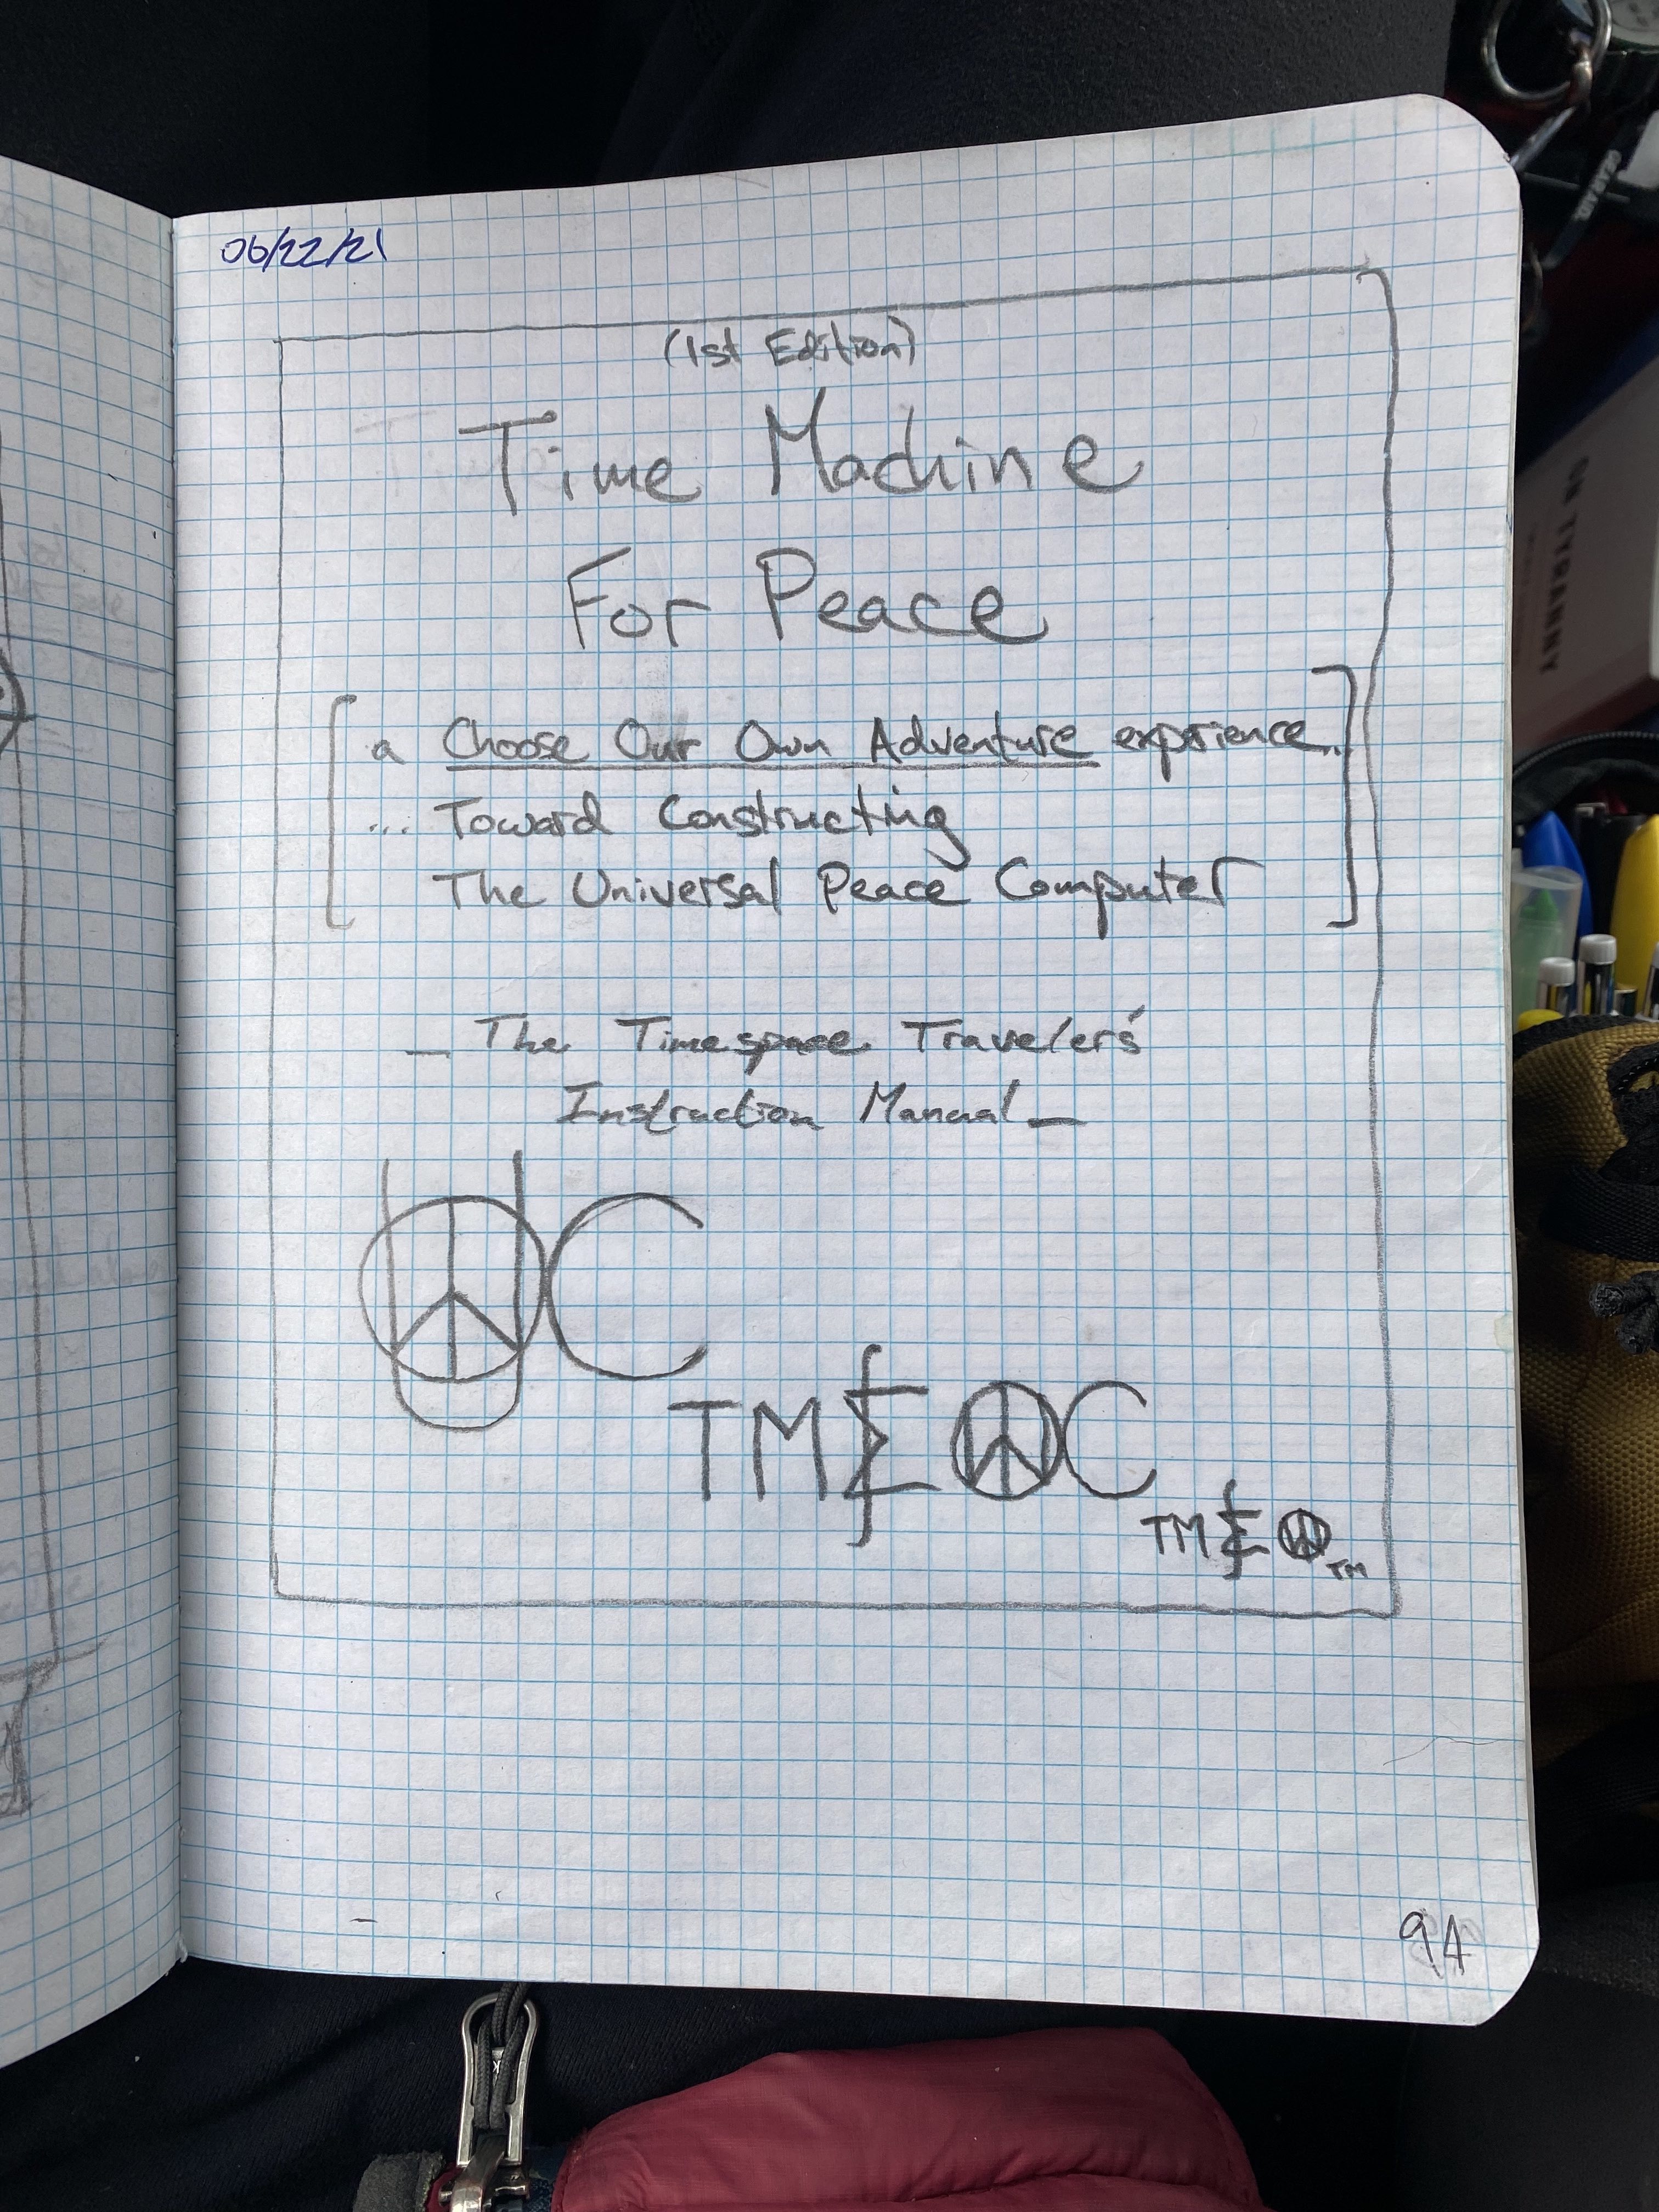 06/22/21
(1st Edition)
Time Machine
For Peace
a Choose Our Own Adventure experience...
... Toward Constructing
The Universal Peace Computer
_ The Timespace Travelers'
Instruction Manual _
U☮C
TM∑☮C
TM∑☮TM
9A
ON TYRANNY